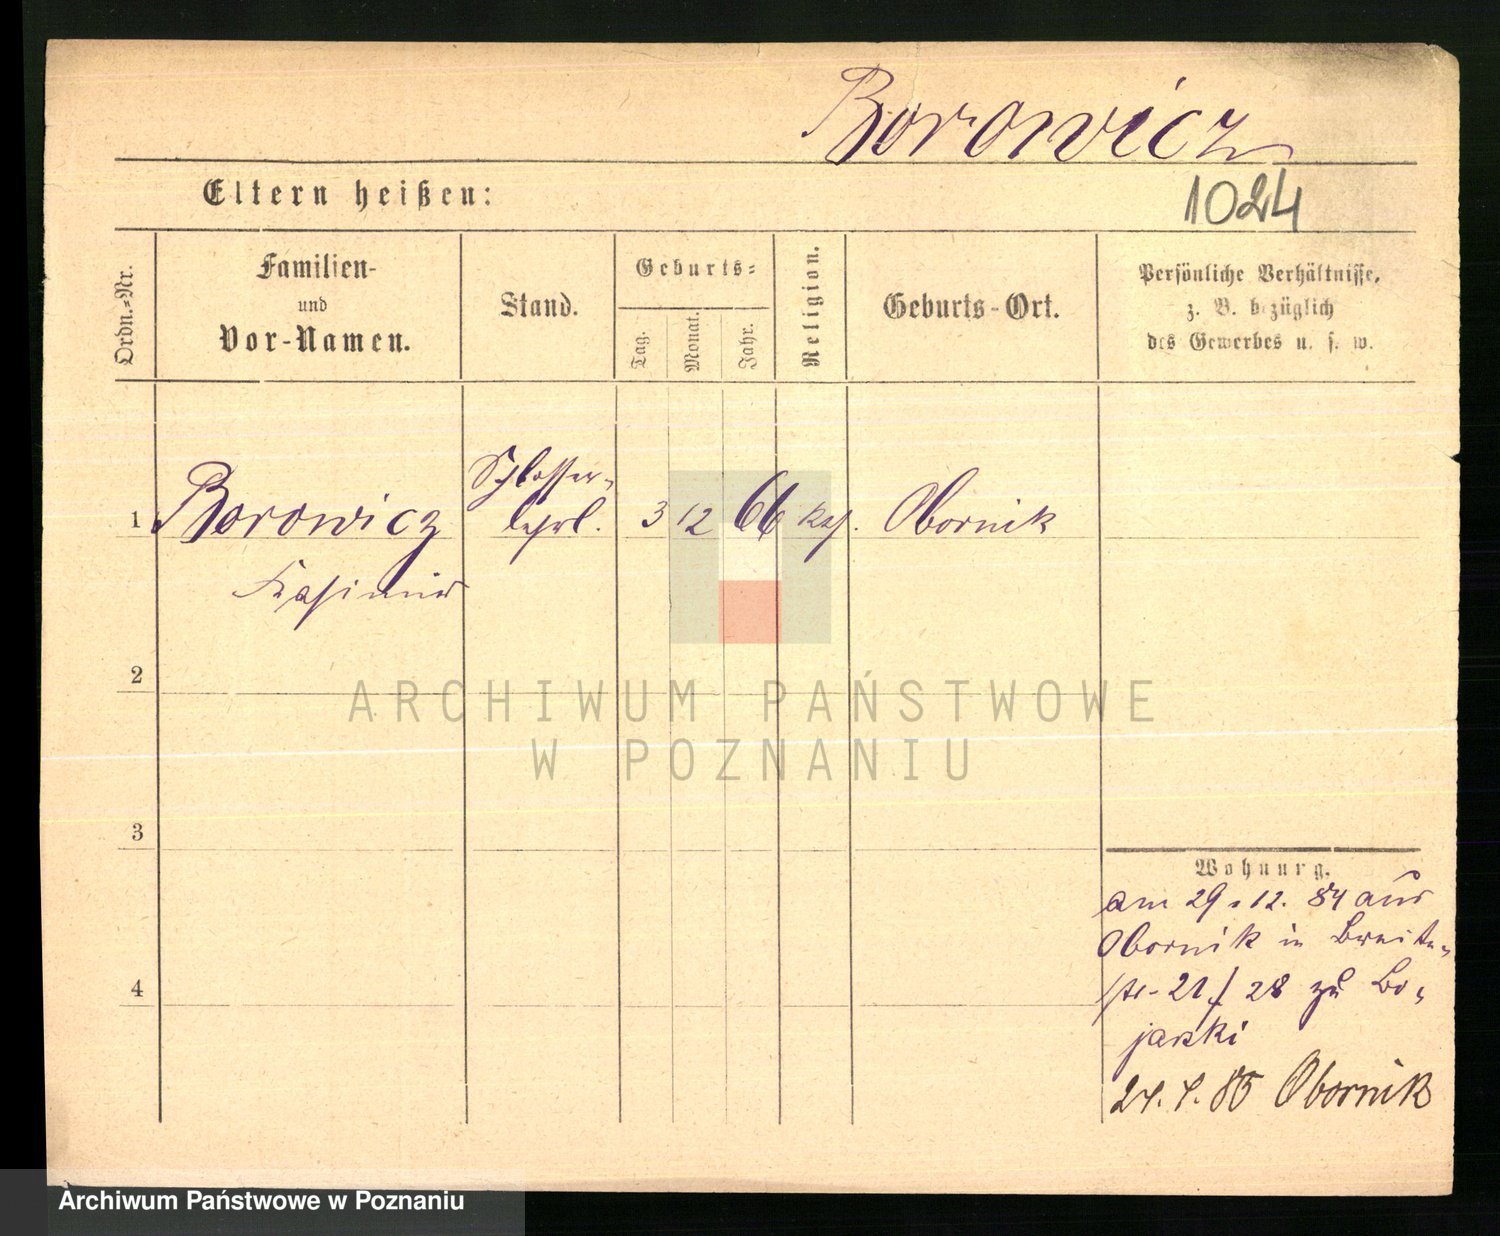 Borowicz
Eltern heißen:
1024
Ordn.-Nr.
Familien-
und
Vor-Namen.
Stand.
Geburts-
Tag.
Monat.
Jahr.
Religion.
Geburts-Ort.
Persönliche Verhältnisse,
z. B. bezüglich
des Gewerbes u. s. w.
1 Borowicz Schlosser-
lehrl. 3 12 66 kath. Obornik
Kasimir
2
ARCHIWUM PAŃSTWOWE
W POZNANIU
3
Wohnung.
am 29.12. 84 aus
Obornik in Breite-
str. 21/28 zu Bo-
jarski
4
85 Obornik
Archiwum Państwowe w Poznaniu